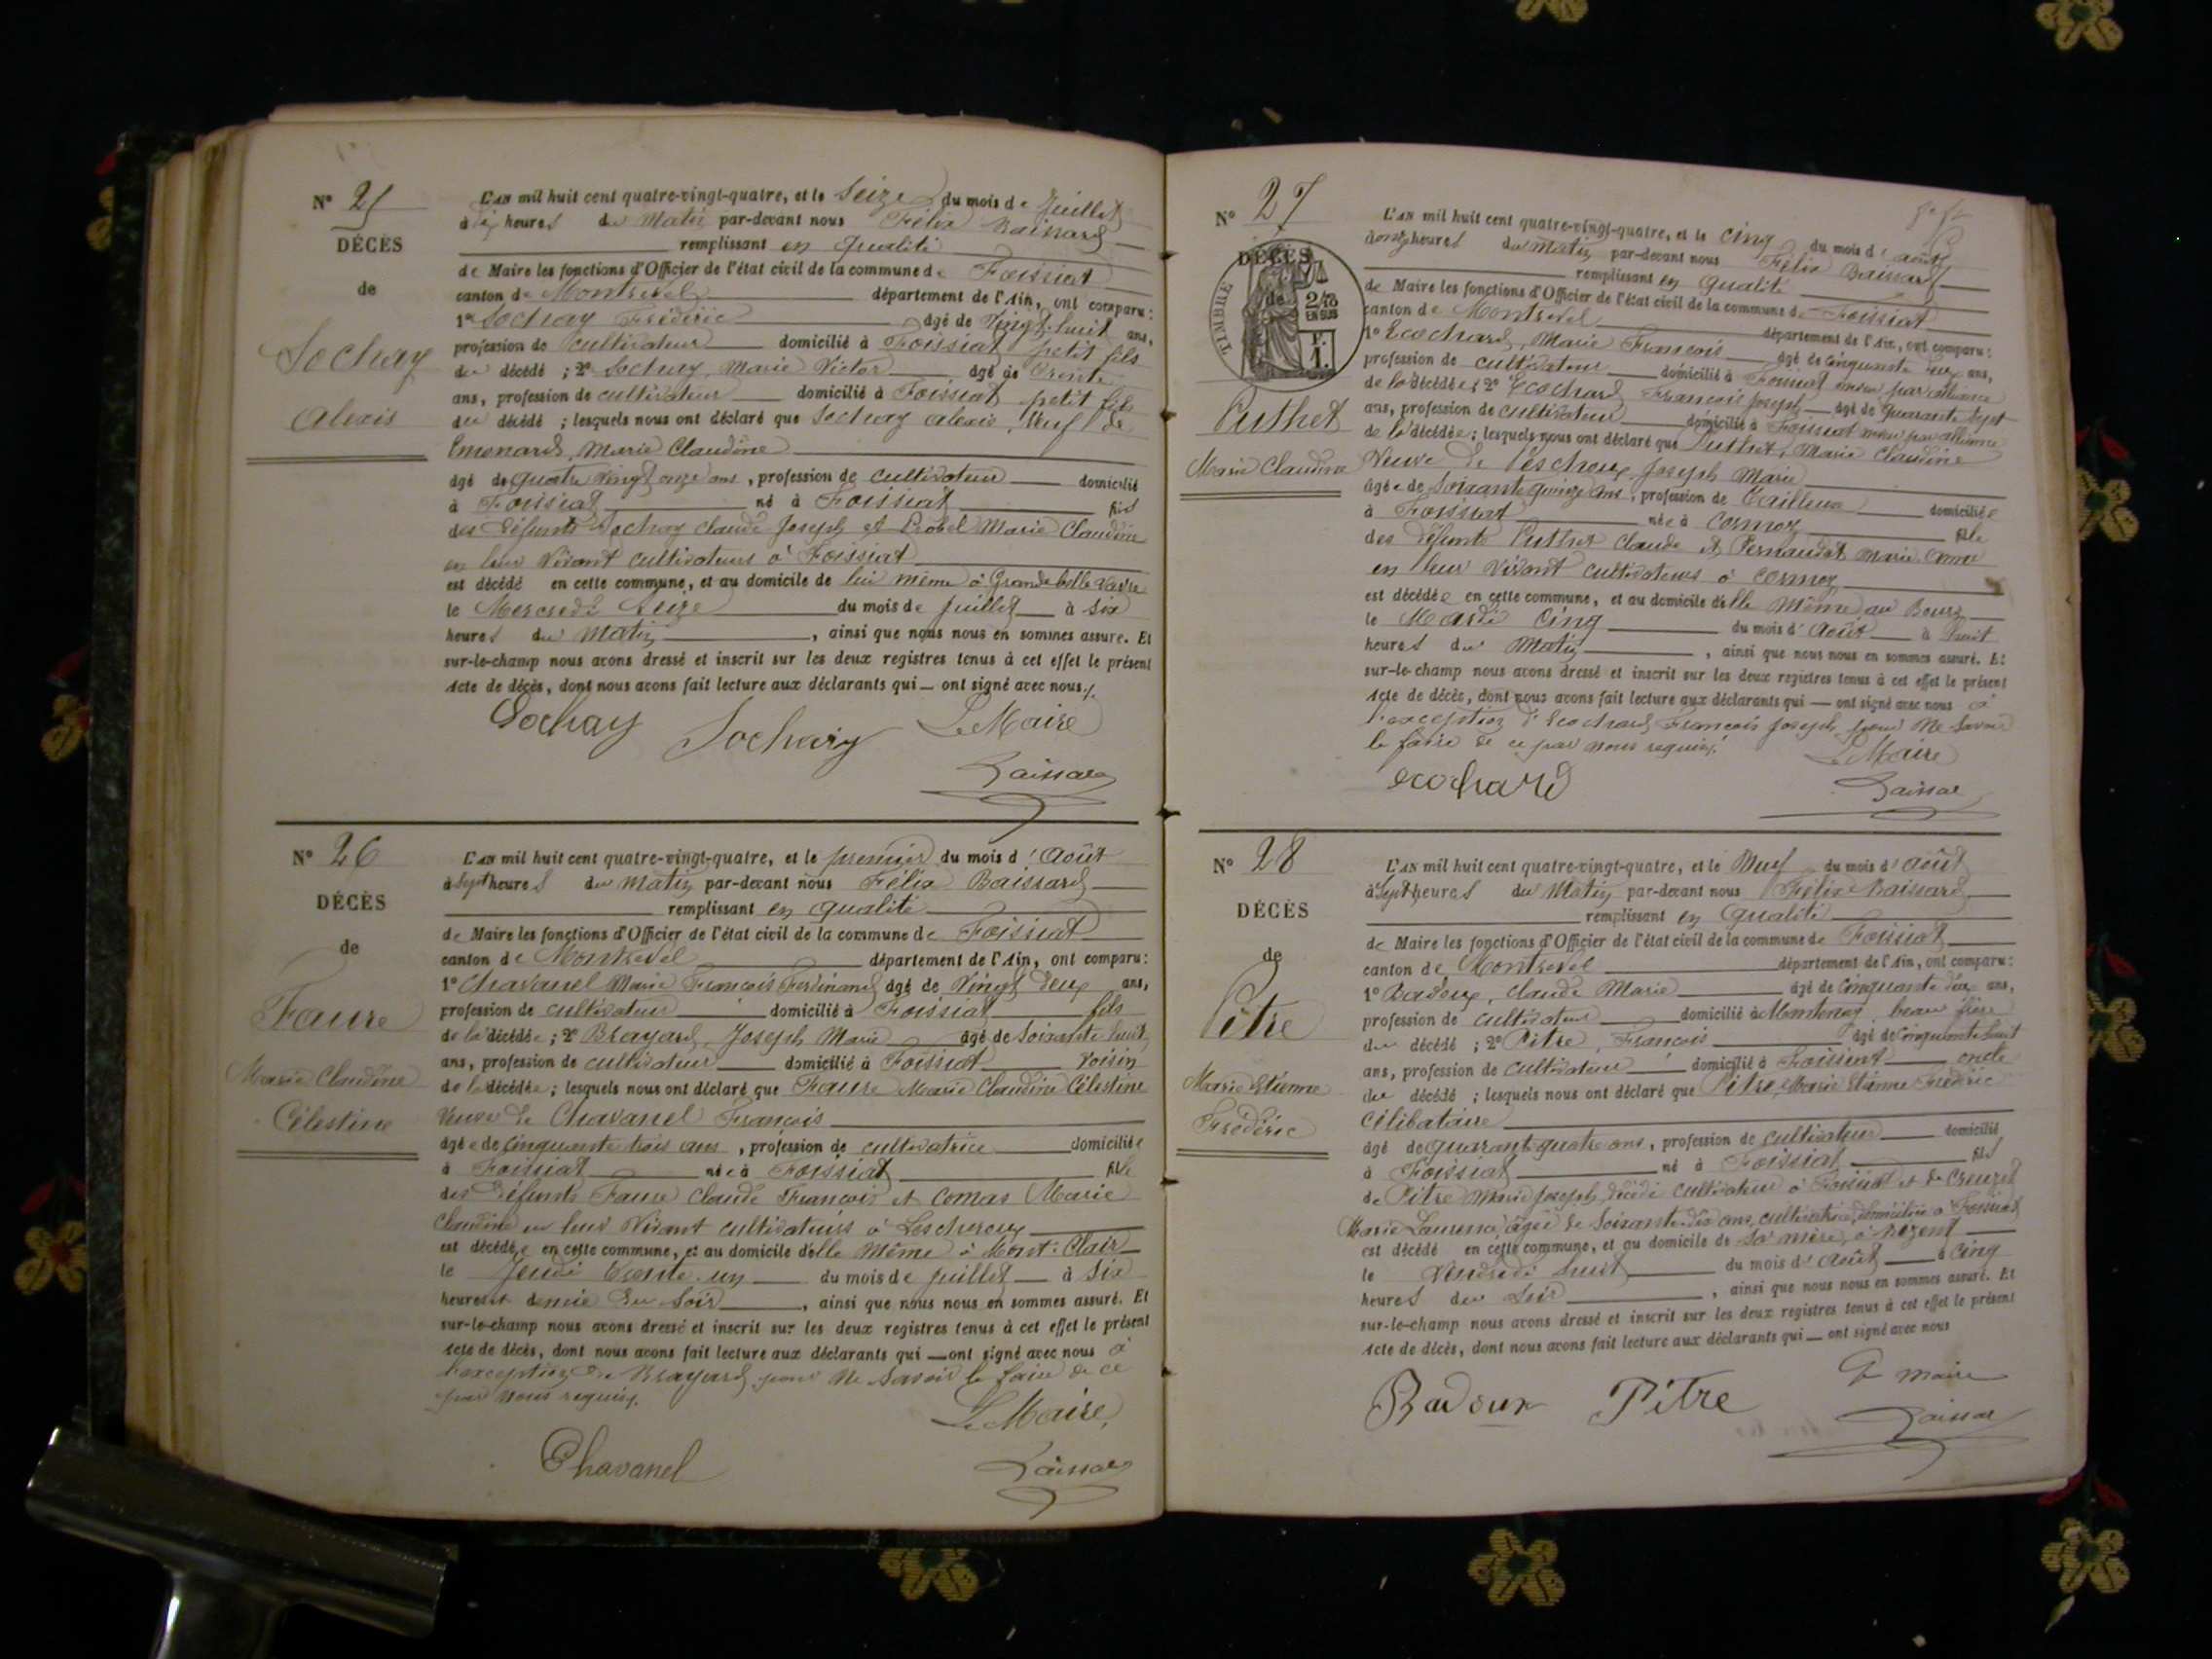 N° 25
DÉCÈS
de
Sochay
Alexis
L'AN mil huit cent quatre-vingt-quatre, et le Seize du mois de Juillet
à dix heures du Matin par-devant nous Félix Baissard
remplissant en qualité
de Maire les fonctions d'Officier de l'état civil de la commune de Foissiat
canton de Montrevel département de l'Ain, ont comparu:
1° Sochay Frédéric âgé de Vingt-huit ans,
profession de cultivateur domicilié à Foissiat petit fils
du décédé ; 2° Sochay, Marie Victor âgé de trente
ans, profession de cultivateur domicilié à Foissiat petit fils
du décédé ; lesquels nous ont déclaré que Sochay Alexis, Veuf de
Emonard, Marie Claudine
âgé de quatre Vingt onze ans, profession de cultivateur domicilié
à Foissiat né à Foissiat fils
des défunts Sochay Claude Joseph et Probel Marie Claudine
en leur Vivant cultivateurs à Foissiat
est décédé en cette commune, et au domicile de lui même à Grande
le Mercredi Seize du mois de Juillet à Six
heures du Matin, ainsi que nous nous en sommes assuré. Et
sur-le-champ nous avons dressé et inscrit sur les deux registres tenus à cet effet le présent
acte de décès, dont nous avons fait lecture aux déclarants qui — ont signé avec nous ./.
Sochay Sochay Le Maire
Baissard
N° 26
DÉCÈS
de
Faure
Marie Claudine
Célestine
L'AN mil huit cent quatre-vingt-quatre, et le premier du mois d'Août
à Sept heures du Matin par-devant nous Félix Baissard
remplissant en qualité
de Maire les fonctions d'Officier de l'état civil de la commune de Foissiat
canton de Montrevel département de l'Ain, ont comparu:
1° Chavanel Marie François Ferdinand âgé de Vingt deux ans,
profession de cultivateur domicilié à Foissiat fils
de la décédée ; 2° Brayard, Joseph Marie âgé de Soixante huit
ans, profession de cultivateur domicilié à Foissiat Voisin
de la décédée ; lesquels nous ont déclaré que Faure Marie Claudine Célestine
Veuve de Chavanel François
âgée de cinquante trois ans, profession de cultivatrice domiciliée
à Foissiat née à Foissiat fille
des défunts Faure Claude François et Comas Marie
Claudine en leur Vivant cultivateurs à Lescheroux
est décédée en cette commune, et au domicile d'elle même à Mont-Clair
le Jeudi trente-un du mois de Juillet à Six
heures et demie du Soir, ainsi que nous nous en sommes assuré. Et
sur-le-champ nous avons dressé et inscrit sur les deux registres tenus à cet effet le présent
acte de décès, dont nous avons fait lecture aux déclarants qui — ont signé avec nous à
l'exception de Brayard pour ne savoir le faire de ce
par nous requis.
Le Maire,
Chavanel Baissard
N° 27
DÉCÈS
de
TIMBRE
2/10 EN SUS
F. 1.
Puthet
Marie Claudine
L'AN mil huit cent quatre-vingt-quatre, et le cinq du mois d'Août
à onze heures du Matin par-devant nous Félix Baissard
remplissant en qualité
de Maire les fonctions d'Officier de l'état civil de la commune de Foissiat
canton de Montrevel département de l'Ain, ont comparu:
1° Ecochard, Marie François âgé de cinquante deux ans,
profession de cultivateur domicilié à Foissiat neveu par alliance
de la décédée ; 2° Ecochard François Joseph âgé de quarante Sept
ans, profession de cultivateur domicilié à Foissiat neveu par alliance
de la décédée ; lesquels nous ont déclaré que Puthet, Marie Claudine
Veuve de Péschoux Joseph Marie
âgée de Soixante quinze ans, profession de Tailleuse domiciliée
à Foissiat née à Cormoz fille
des défunts Puthet Claude et Pernaudat Marie Anne
en leur Vivant cultivateurs à Cormoz
est décédée en cette commune, et au domicile d'elle Même au Bourg
le Mardi Cinq du mois d'Août à huit
heures du Matin, ainsi que nous nous en sommes assuré. Et
sur-le-champ nous avons dressé et inscrit sur les deux registres tenus à cet effet le présent
acte de décès, dont nous avons fait lecture aux déclarants qui — ont signé avec nous à
l'exception d'Ecochard François Joseph pour ne Savoir
le faire de ce par nous requis.
Le Maire
ecochard Baissard
N° 28
DÉCÈS
de
Pitre
Marie Etienne
Frédéric
L'AN mil huit cent quatre-vingt-quatre, et le Neuf du mois d'Août
à Sept heures du Matin par-devant nous Félix Baissard
remplissant en qualité
de Maire les fonctions d'Officier de l'état civil de la commune de Foissiat
canton de Montrevel département de l'Ain, ont comparu:
1° Badoux, Claude Marie âgé de cinquante deux ans,
profession de cultivateur domicilié à Mantenay beau frère
du décédé ; 2° Pitre, François âgé de cinquante huit
ans, profession de cultivateur domicilié à Foissiat oncle
du décédé ; lesquels nous ont déclaré que Pitre, Marie Etienne Frédéric
Célibataire
âgé de quarante quatre ans, profession de cultivateur domicilié
à Foissiat né à Foissiat fils
de Pitre Marie Joseph décédé cultivateur à Foissiat et de Creuzet
Marie Laurence âgée de Soixante-dix ans, cultivatrice, domiciliée à Foissiat
est décédé en cette commune, et au domicile de Sa mère à Nezent
le Vendredi huit du mois d'Août à Cinq
heures du Soir, ainsi que nous nous en sommes assuré. Et
sur-le-champ nous avons dressé et inscrit sur les deux registres tenus à cet effet le présent
acte de décès, dont nous avons fait lecture aux déclarants qui — ont signé avec nous
Le maire
Badoux Pitre Baissard